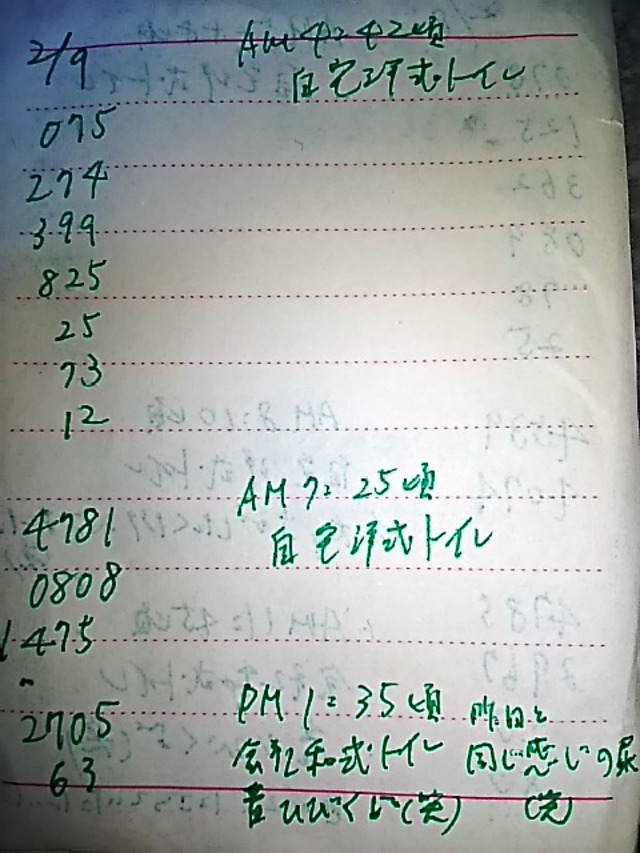 2/9 AM 4:42頃
自宅洋式トイレ
075
274
399
825
25
73
12
AM 7:25頃
4781
自宅洋式トイレ
0808
1475
2705
PM 1:35頃 昨日と
会社和式トイレ 同じ感じの尿
63
音ひびくし(笑) (笑)